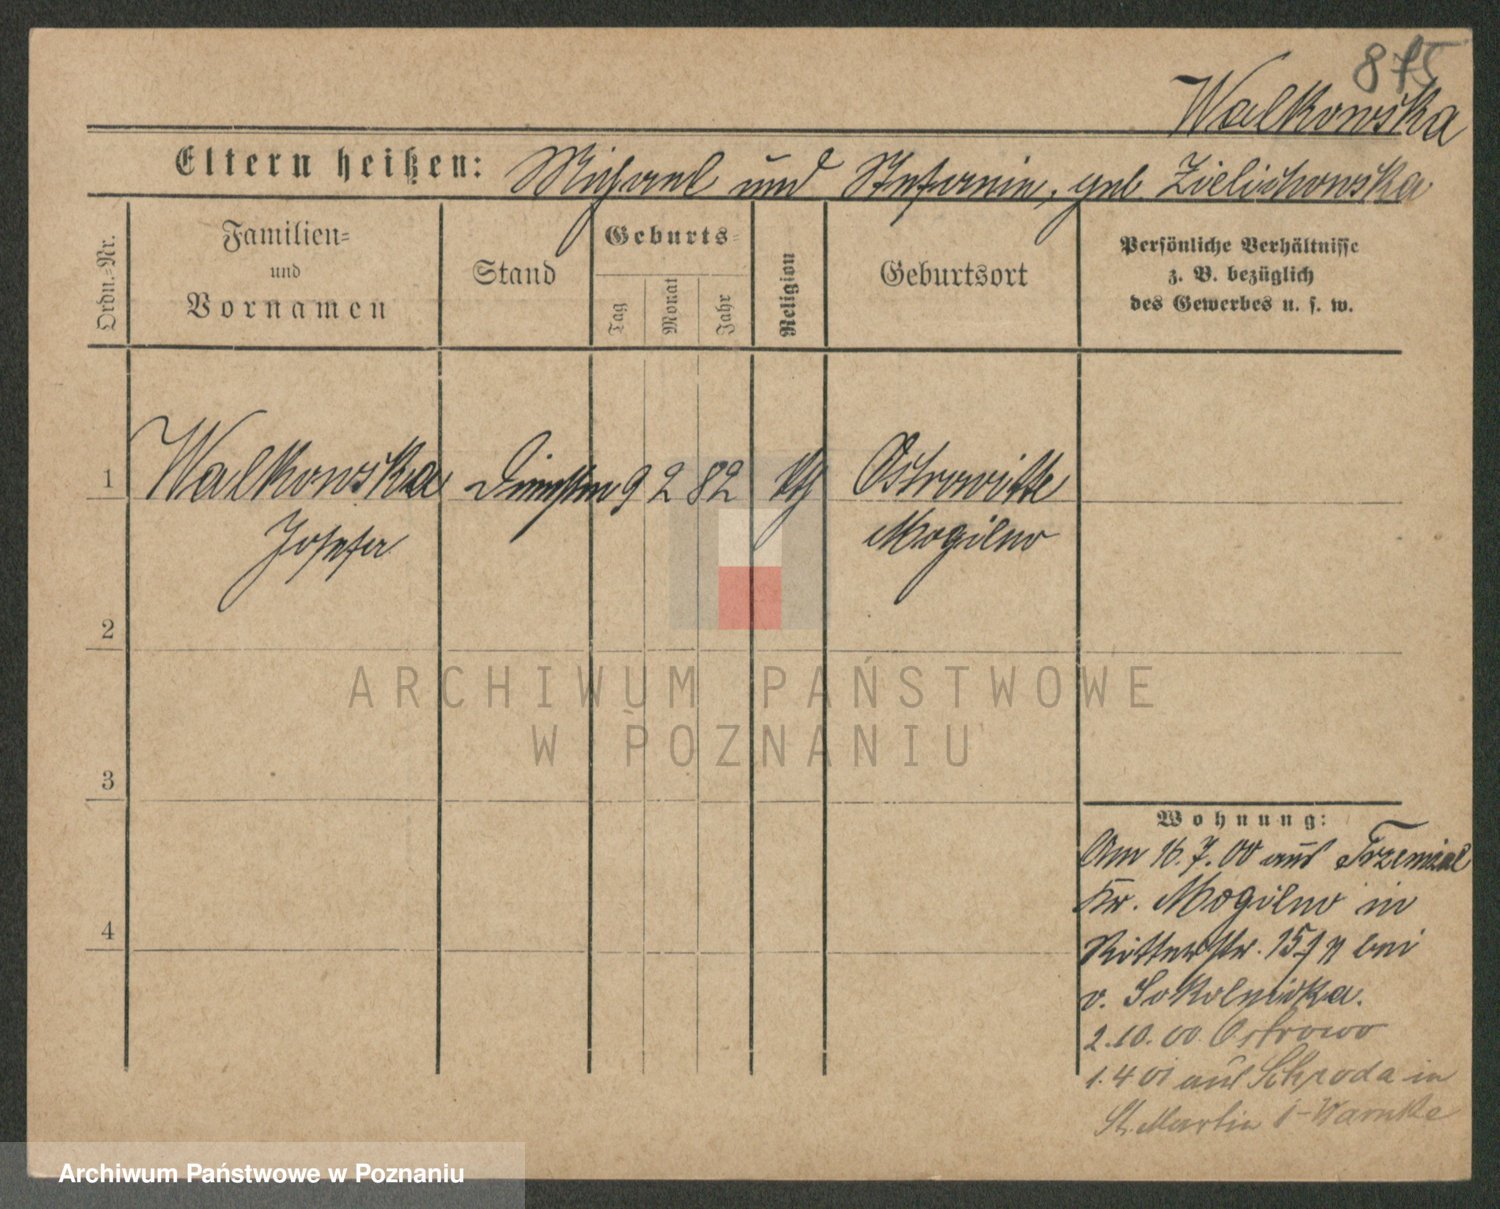 875
Walkowska
Eltern heißen: Michael und Stefanie, geb. Zielichowska
Ordn.-Nr.
Familien-
und
Vornamen
Stand
Geburts-
Tag
Monat
Jahr
Religion
Geburtsort
Persönliche Verhältnisse
z. B. bezüglich
des Gewerbes u. s. w.
1 Walkowska 9 2 82 kth Ostrowitte
Josefa Mogilno
2
3
4
Wohnung:
Am 16.7.00 aus Trzemżal
Kr. Mogilno in
Ritterstr. 15 bei
v. Sokolnicka.
2.10.00 Ostrowo
1.4 01 aus Schroda in
St. Martin Warnke
ARCHIWUM PAŃSTWOWE
W POZNANIU
Archiwum Państwowe w Poznaniu